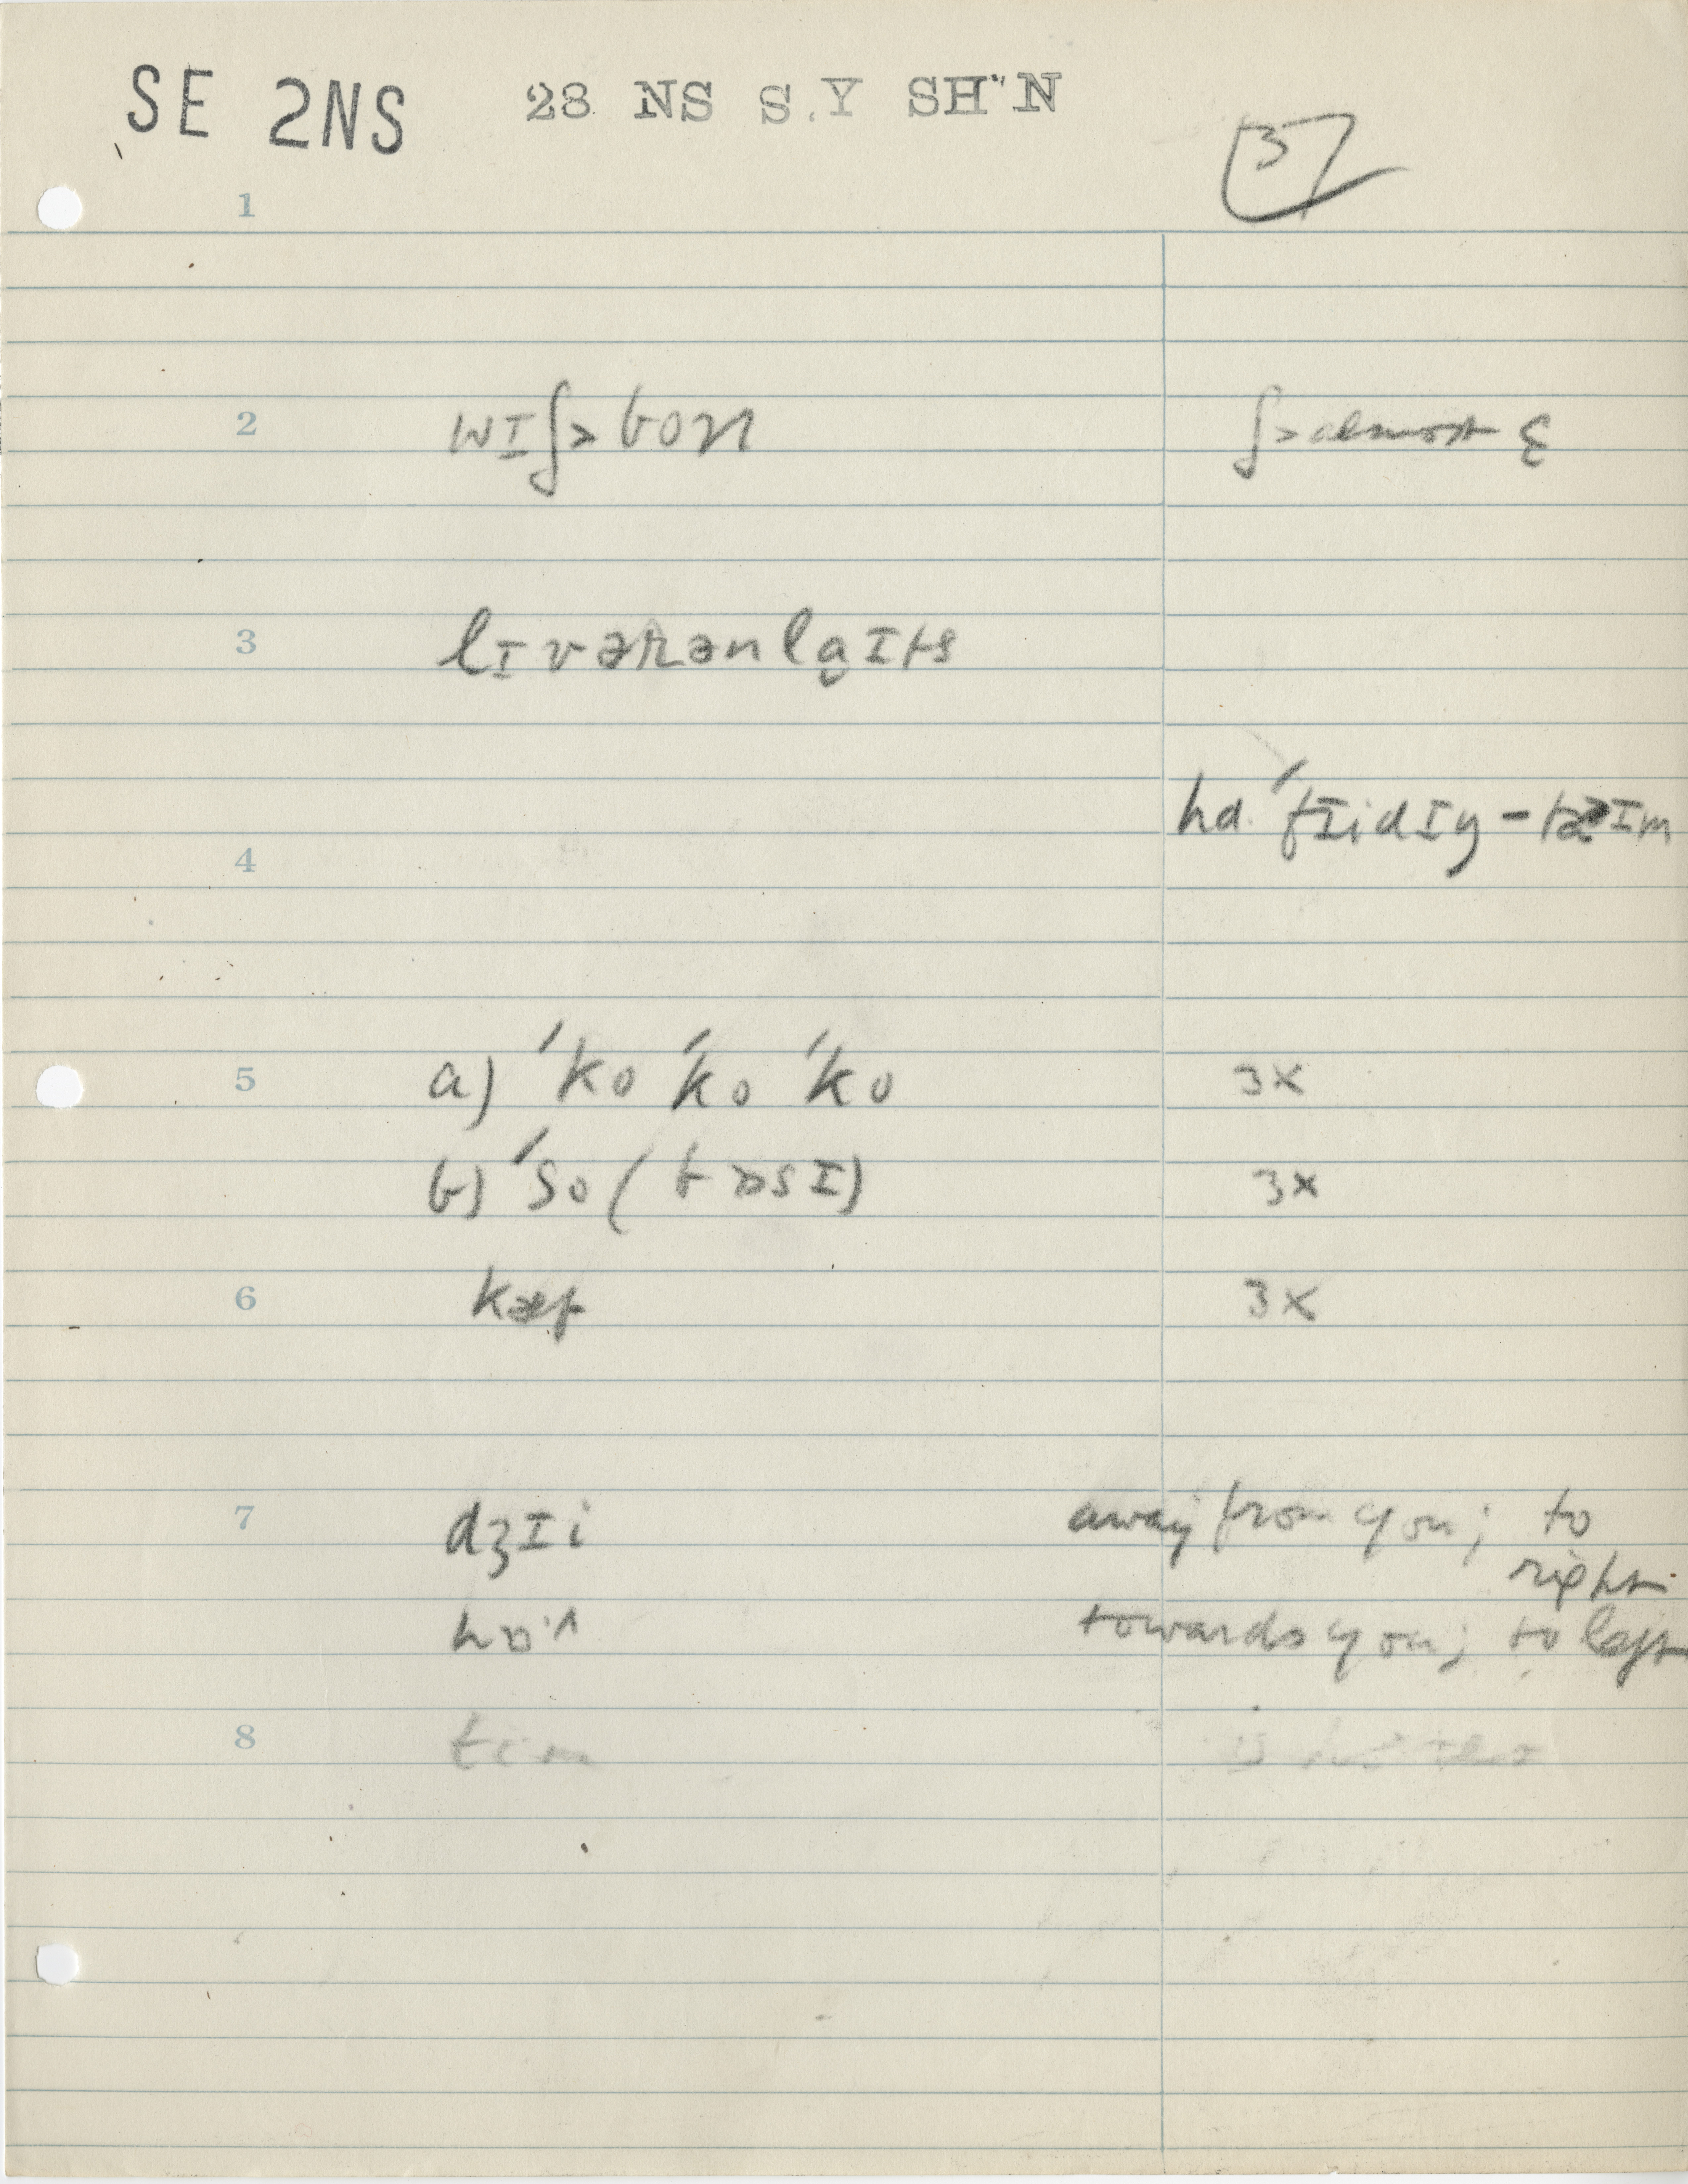 SE 2NS 28 NS S.Y SH"N
37
1
2 wɪʃ> bon ʃ> almost ε
3 lɪvərənlaɪts
hɑ· ˈfɪidɪŋ-
4
5 a) ˈko ˈko ˈko 3x
b) ˈso ( bɒsɪ) 3x
6 3x
7 dʒɪi away from you; to
right
hɒ·^ towards you; to left
8